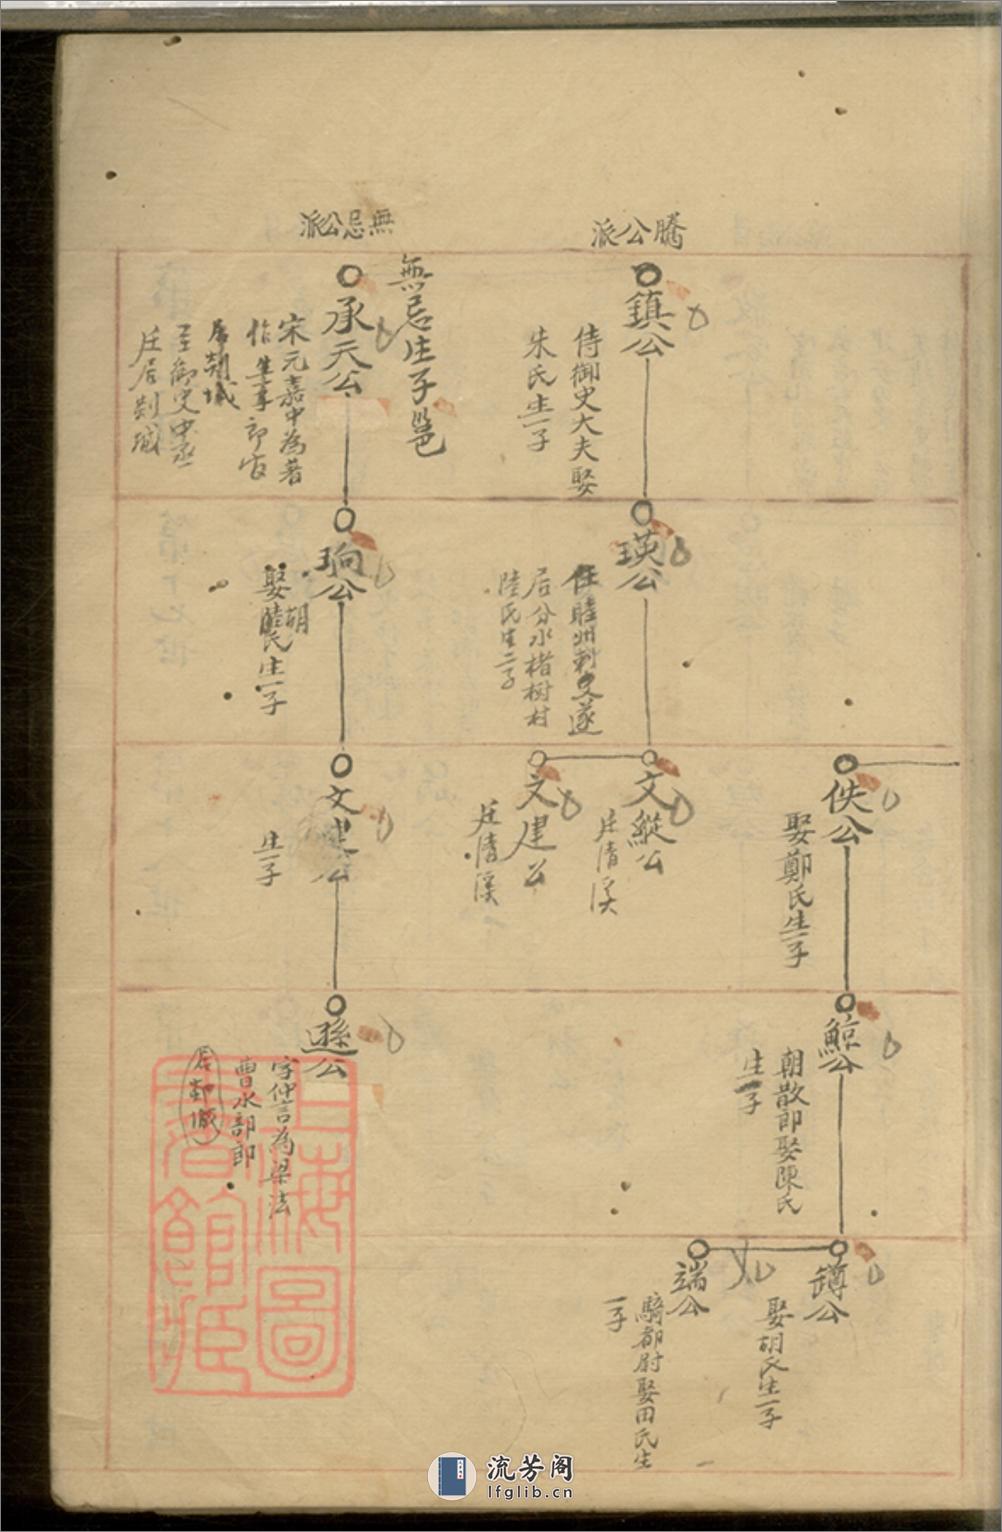 騰公派
鎮公
侍御史大夫娶
朱氏生一子
瑛公
任睦州刺史遂
居分水楮樹村
陸氏生二子
文縱公
庄清溪
文建公
庄清溪
佚公
娶鄭氏生一子
鯨公
朝散郎娶陳氏
生一子
鐏公
娶胡氏生一子
端公
騎都尉娶田氏生
一子
無忌公派
無忌生子邕
承天公
宋元嘉中為著
作
居剡城
至御史中丞
庄居剡城
珦公
娶陸氏生一子
胡
文建公
生一子
遜公
字仲言為梁法
曹水部郎
居剡城
上海圖
書館藏
流芳阁
lfglib.cn